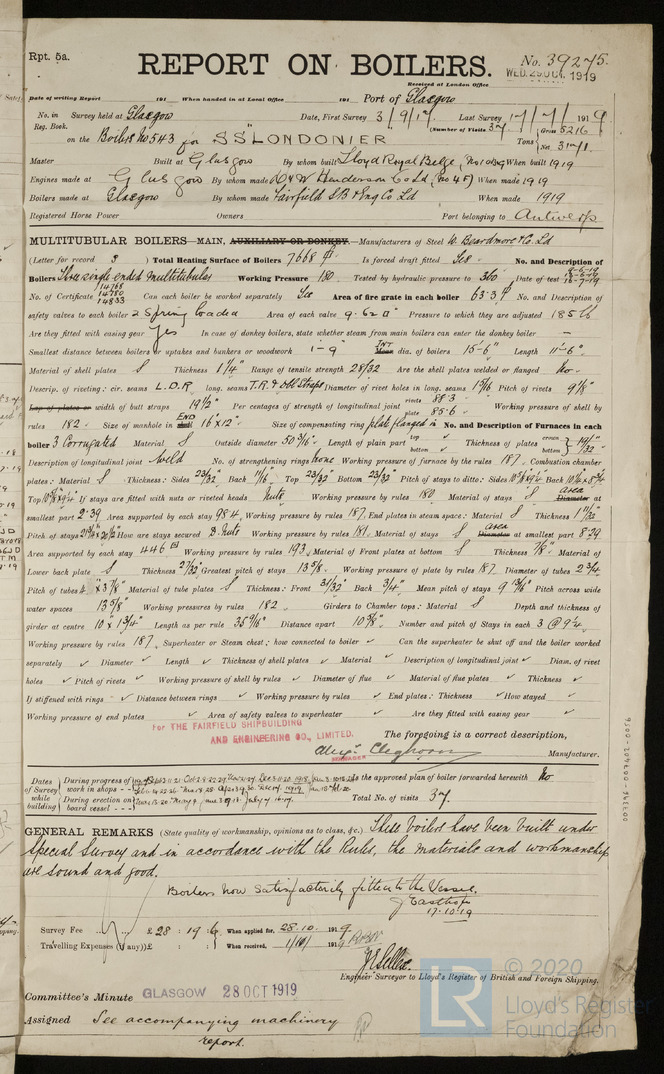 Rpt. 5a.
REPORT ON BOILERS.
No. 39275.
Received at London Office
WED. 29 OCT. 1919
Date of writing Report 191 When handed in at Local Office 191 Port of Glasgow
No. in Survey held at Glasgow Date, First Survey 3/9/17 Last Survey 17/7/1919
Reg. Book. (Number of Visits 37)
on the Boilers No 543 for SS LONDONIER Tons Gross 5216
Net
Master Built at Glasgow By whom built Lloyd Royal Belge When built 1919
Engines made at Glasgow By whom made D. & W. Henderson Co Ld When made 1919
Boilers made at Glasgow By whom made Fairfield SB & Eng Co Ld When made 1919
Registered Horse Power Owners Port belonging to Antwerp
MULTITUBULAR BOILERS—MAIN, AUXILIARY OR DONKEY.—Manufacturers of Steel W. Beardmore & Co. Ld
(Letter for record S) Total Heating Surface of Boilers 7668 Is forced draft fitted Yes No. and Description of
Boilers Three single ended Multitubular Working Pressure 180 Tested by hydraulic pressure to 360 Date of test
No. of Certificate 14768 14780 14833 Can each boiler be worked separately Yes Area of fire grate in each boiler 63.3 No. and Description of
safety valves to each boiler 2 Spring loaded Area of each valve 9.62 Pressure to which they are adjusted 185 lb
Are they fitted with easing gear Yes In case of donkey boilers, state whether steam from main boilers can enter the donkey boiler —
Smallest distance between boilers or uptakes and bunkers or woodwork 1'-9" INT dia. of boilers 15'-6" Length 11'-6"
Material of shell plates S Thickness 1 1/4" Range of tensile strength 28/32 Are the shell plates welded or flanged No
Descrip. of riveting: cir. seams L.D.R. long. seams T.R. & dbl Straps Diameter of rivet holes in long. seams 1 5/16 Pitch of rivets 9 1/8"
Lap of plates or width of butt straps 19 1/2" Per centages of strength of longitudinal joint rivets 88.3 plate 85.6 Working pressure of shell by
rules 182 Size of manhole in END 16"x12" Size of compensating ring plate flanged in No. and Description of Furnaces in each
boiler 3 Corrugated Material S Outside diameter 50 5/16" Length of plain part top bottom Thickness of plates crown bottom 19/32"
Description of longitudinal joint Weld No. of strengthening rings None Working pressure of furnace by the rules 187 Combustion chamber
plates: Material S Thickness: Sides 23/32" Back 11/16" Top 23/32" Bottom 23/32" Pitch of stays to ditto: Sides Back
Top If stays are fitted with nuts or riveted heads Nuts Working pressure by rules 180 Material of stays S Area at
smallest part 2.39 Area supported by each stay 98.4 Working pressure by rules 187 End plates in steam space: Material S Thickness 1 11/32"
Pitch of stays How are stays secured D. Nuts Working pressure by rules 181 Material of stays S Area at smallest part 8.29
Area supported by each stay 446 Working pressure by rules 193 Material of Front plates at bottom S Thickness 7/8" Material of
Lower back plate S Thickness 27/32" Greatest pitch of stays 13 5/8" Working pressure of plate by rules 187 Diameter of tubes 2 3/4
Pitch of tubes 4"x3 7/8" Material of tube plates S Thickness: Front 31/32" Back 3/4" Mean pitch of stays 9 13/16" Pitch across wide
water spaces 13 5/8" Working pressures by rules 182 Girders to Chamber tops: Material S Depth and thickness of
girder at centre 10"x1 3/4" Length as per rule 35 9/16" Distance apart 10 5/8" Number and pitch of Stays in each 3 @ 9 1/4
Working pressure by rules 187 Superheater or Steam chest; how connected to boiler ✓ Can the superheater be shut off and the boiler worked
separately ✓ Diameter ✓ Length ✓ Thickness of shell plates ✓ Material ✓ Description of longitudinal joint ✓ Diam. of rivet
holes ✓ Pitch of rivets ✓ Working pressure of shell by rules ✓ Diameter of flue ✓ Material of flue plates ✓ Thickness ✓
If stiffened with rings ✓ Distance between rings ✓ Working pressure by rules ✓ End plates: Thickness ✓ How stayed ✓
Working pressure of end plates ✓ Area of safety valves to superheater ✓ Are they fitted with easing gear ✓
For THE FAIRFIELD SHIPBUILDING
AND ENGINEERING CO., LIMITED.
The foregoing is a correct description,
Alexr. Cleghorn Manufacturer.
MANAGER
Dates of Survey while building
During progress of work in shops
Is the approved plan of boiler forwarded herewith No
During erection on board vessel
Total No. of visits 37
GENERAL REMARKS (State quality of workmanship, opinions as to class, &c.) These boilers have been built under
Special Survey and in accordance with the Rules, the materials and workmanship
are sound and good.
Boilers now satisfactorily fitted to the Vessel.
J Easthope
17.10.19
Survey Fee £ 28 : 19 : 6 When applied for, 28.10.1919
Travelling Expenses (if any) £ : : When received, 191
Engineer Surveyor to Lloyd's Register of British and Foreign Shipping.
Committee's Minute GLASGOW 28 OCT 1919
Assigned See accompanying machinery
report.
© 2020
Lloyd's Register
Foundation
LR